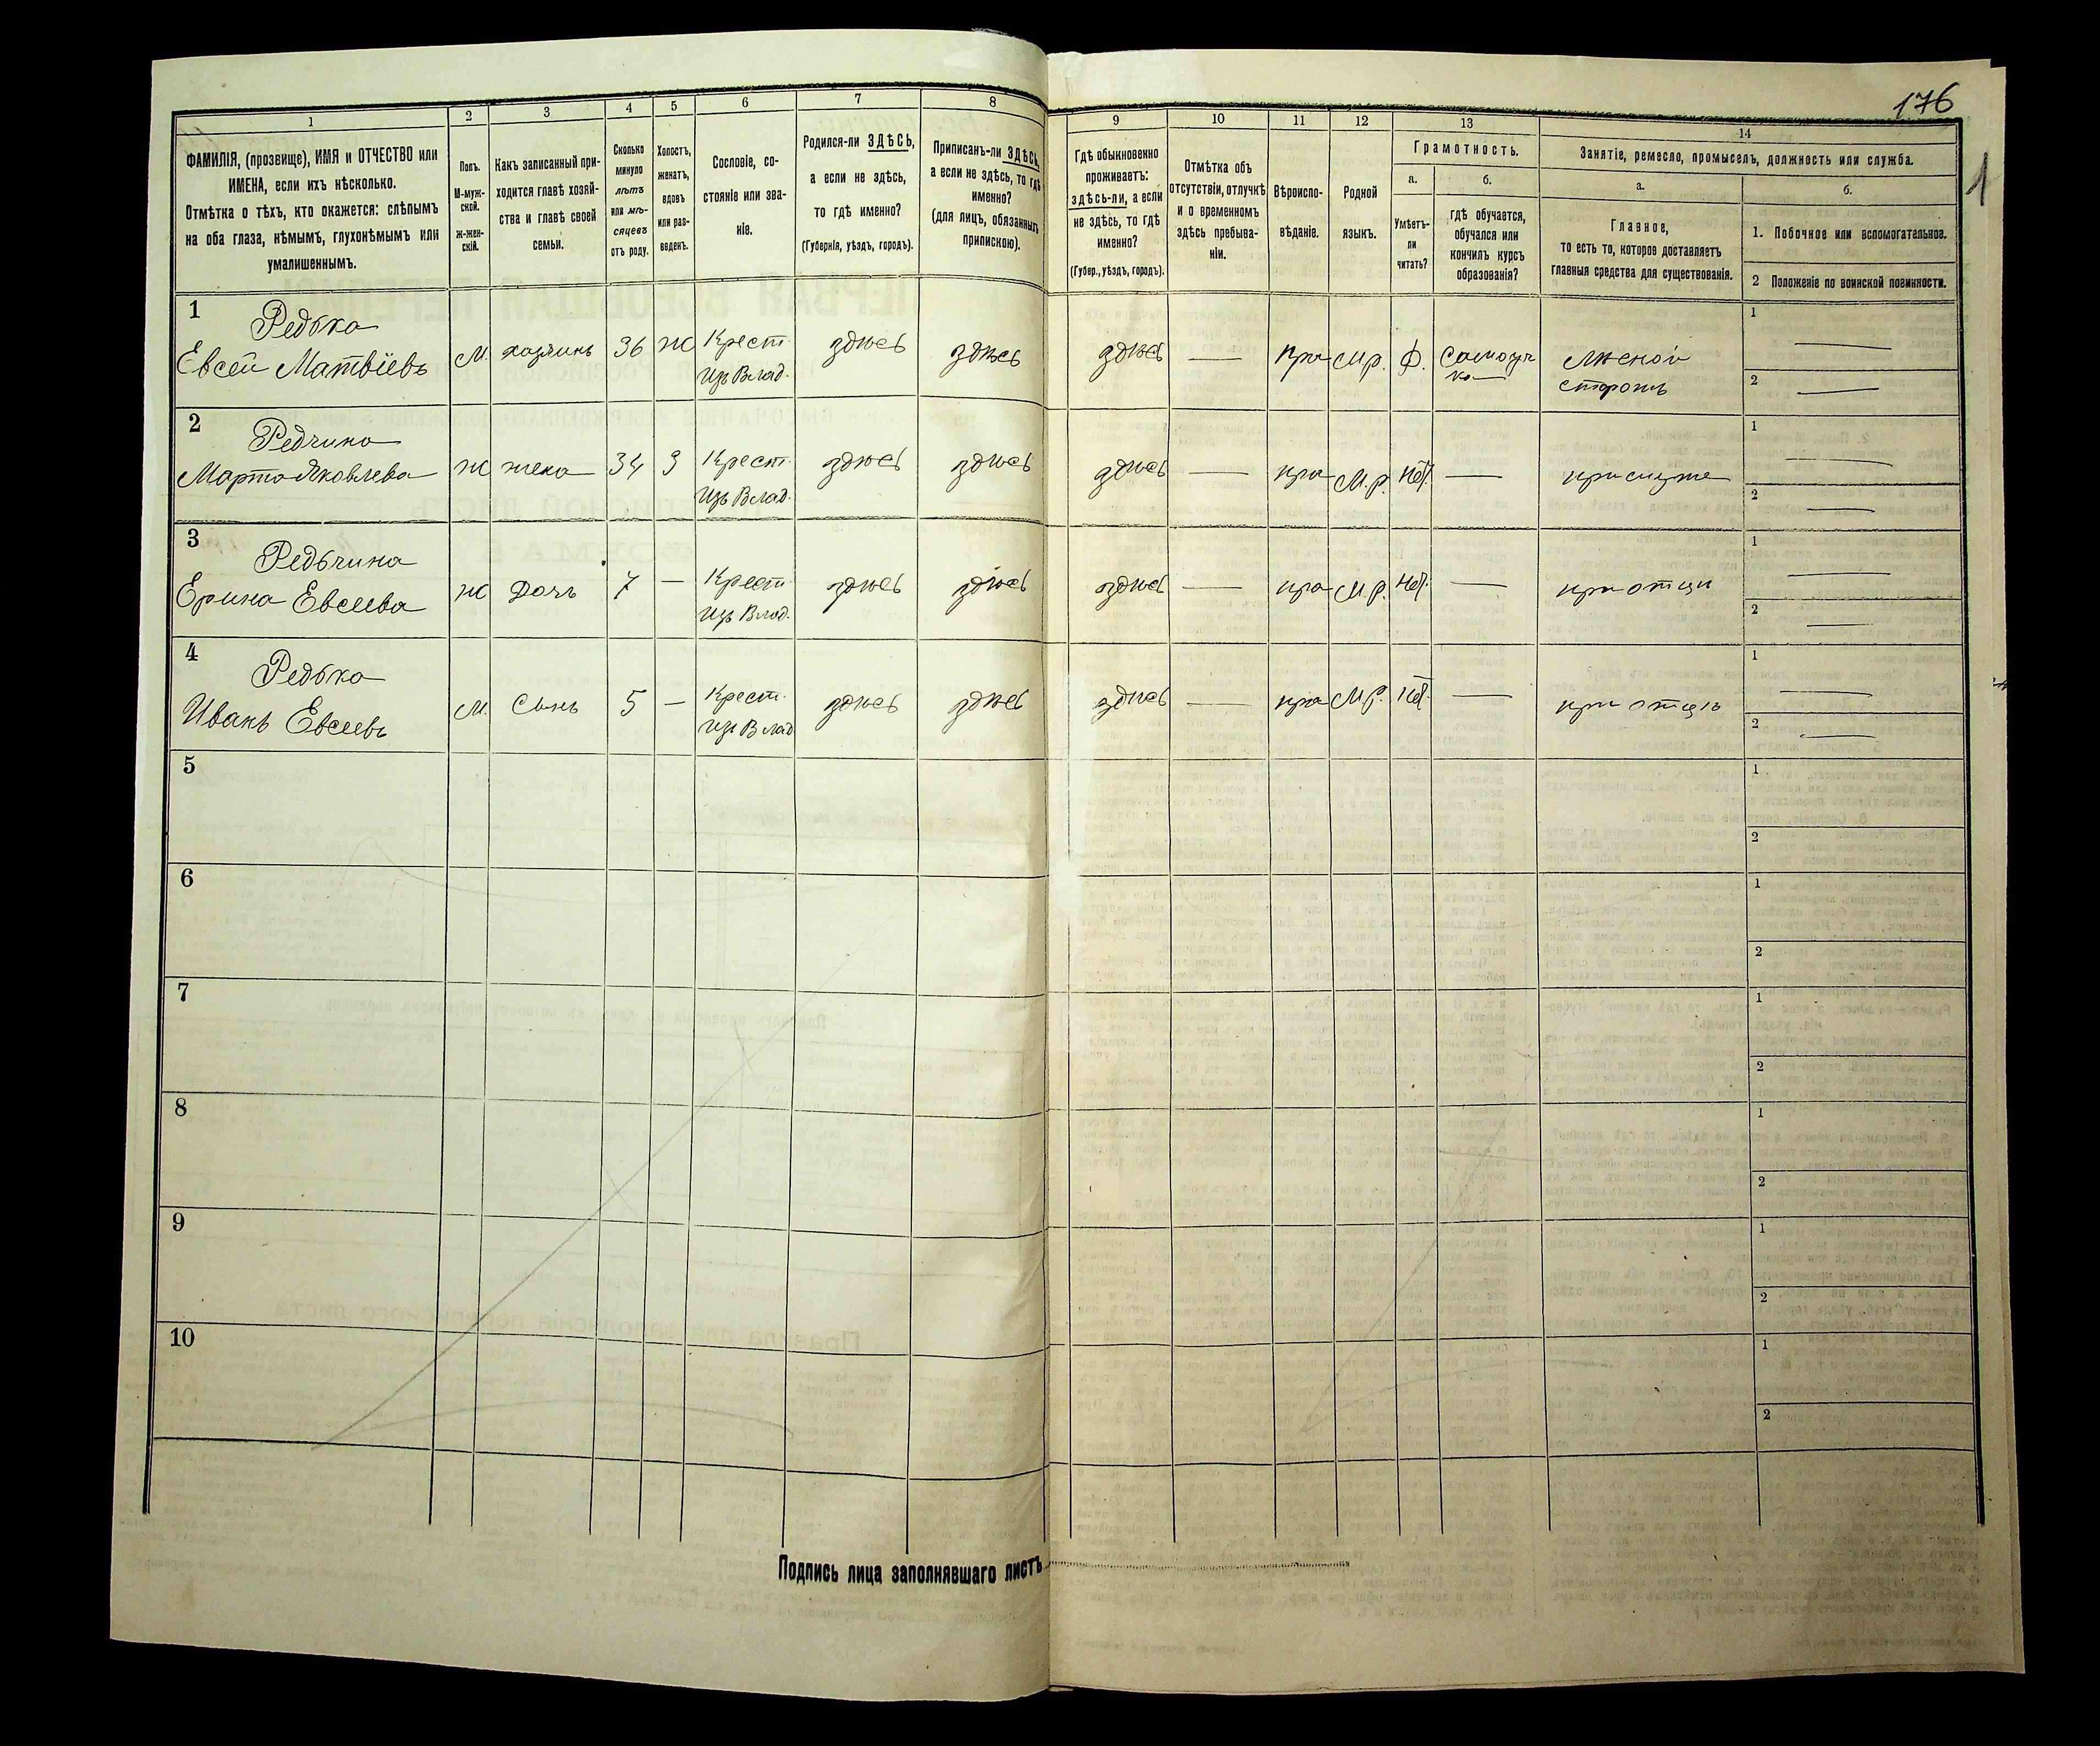 176
1
1
2
3
4
5
6
7
8
ФАМИЛІЯ, (прозвище), ИМЯ и ОТЧЕСТВО или
ИМЕНА, если ихъ нѣсколько.
Отмѣтка о тѣхъ, кто окажется: слѣпымъ
на оба глаза, нѣмымъ, глухонѣмымъ или
умалишеннымъ.
Полъ.
М-муж-
ской.
Ж-жен-
скій.
Какъ записанный при-
ходится главѣ хозяй-
ства и главѣ своей
семьи.
Сколько
минуло
лѣтъ
или мѣ-
сяцевъ
отъ роду.
Холостъ,
женатъ,
вдовъ
или раз-
веденъ.
Сословіе, со-
стояніе или зва-
ніе.
Родился-ли ЗДѢСЬ,
а если не здѣсь,
то гдѣ именно?
(Губернія, уѣздъ, городъ).
Приписанъ-ли ЗДѢСЬ,
а если не здѣсь, то гдѣ
именно?
(для лицъ, обязанныхъ
припискою).
9
10
11
12
13
14
Гдѣ обыкновенно
проживаетъ:
здѣсь-ли, а если
не здѣсь, то гдѣ
именно?
(Губер., уѣздъ, городъ).
Отмѣтка объ
отсутствіи, отлучкѣ
и о временномъ
здѣсь пребыва-
ніи.
Вѣроиспо-
вѣданіе.
Родной
языкъ.
Грамотность.
а.
б.
Умѣетъ-
ли
читать?
гдѣ обучается,
обучался или
кончилъ курсъ
образованія?
Занятіе, ремесло, промыселъ, должность или служба.
а.
б.
Главное,
то есть то, которое доставляетъ
главныя средства для существованія.
1. Побочное или вспомогательное.
2 Положеніе по воинской повинности.
1
Редька
Евсей Матвіевъ
М. хозяинъ 36 Ж Крест. здѣсь здѣсь здѣсь — пра М.р. Ф. Самоуч
Изъ Влад. ка
Лѣсной
сторожъ
1 —
2 —
2
Редчина
Марта Яковлева
Ж жена 34 З Крест. здѣсь здѣсь здѣсь — пра М.р. Нѣт — прислуже
Изъ Влад.
1 —
2 —
3
Редьчина
Ерина Евсеева
Ж Дочь 7 — Крест. здѣсь здѣсь здѣсь — пра М.р. Нѣт. — при отцѣ
Изъ Влад.
1 —
2 —
4
Редька
Иванъ Евсеевъ
М. Сынъ 5 — Крест. здѣсь здѣсь здѣсь — пра М.р. Нѣт. — при отцѣ
Изъ Влад
1 —
2 —
5
1
2
6
1
2
7
1
2
8
1
2
9
1
2
10
1
2
Подпись лица заполнявшаго листъ